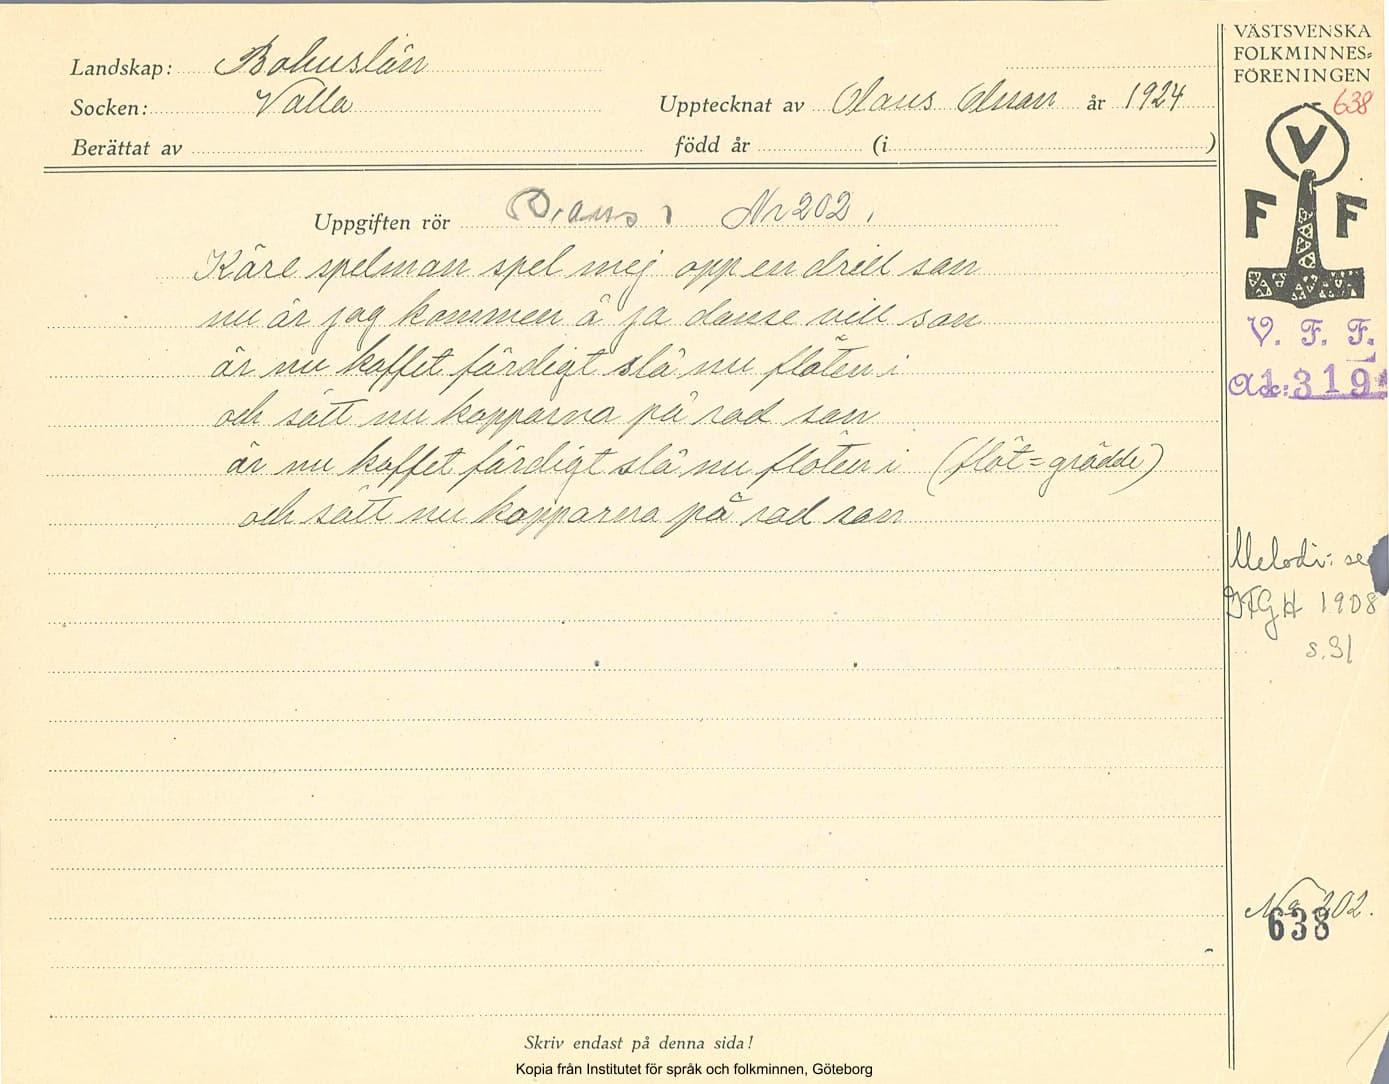 Landskap: Bohuslän
Socken: Valla
Upptecknat av Olaus år 1924
Berättat av
född år (i )
VÄSTSVENSKA
FOLKMINNES=
FÖRENINGEN
638
V
F F
V. F. F.
Acc: 1319
Uppgiften rör Dans Nr 202.
Käre spelman spel mej opp en drill san
nu är jag kommen å ja danse vill san
är nu kaffet färdigt slå nu flöten i
och sätt nu kopparna på rad san
är nu kaffet färdigt slå nu flöten i (flöt = grädde)
och sätt nu kopparna på rad san
Melodi: se
1908
s. 31
No 202.
638
Skriv endast på denna sida!
Kopia från Institutet för språk och folkminnen, Göteborg